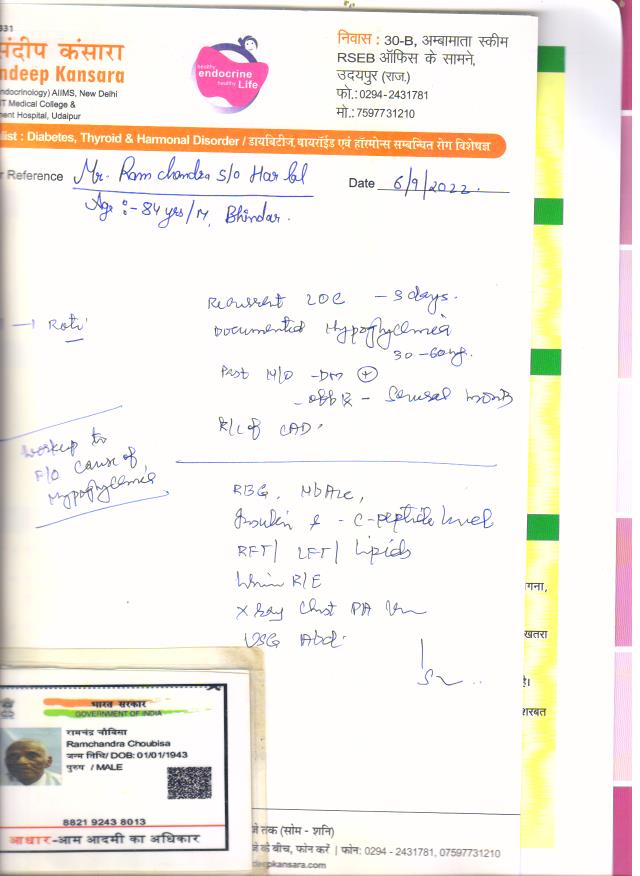 331
संदीप कंसारा
ndeep Kansara
ndocrinology) AIIMS, New Delhi
T Medical College &
ent Hospital, Udaipur
healthy
endocrine
healthy
Life
निवास : 30-B, अम्बामाता स्कीम
RSEB ऑफिस के सामने,
उदयपुर (राज.)
फो.: 0294-2431781
मो.: 7597731210
list : Diabetes, Thyroid & Harmonal Disorder / डायबिटीज, थायरॉईड एवं हॉरमोन्स सम्बन्धित रोग विशेषज्ञ
r Reference Mr. Ram chandra S/o Har lal
Date 6/9/2022.
Age :- 84 yrs/M, Bhindar.
Recurrent LOC - 3 days.
→ Roti
Documented Hypoglycemia
30-60
Past H/O - DM ⊕
- off - Several months
K/C of CAD.
workup to
F/O cause of
Hypoglycemia
RBG, HbA1c,
Insulin & - C-peptide level
RFT/ LFT/ Lipids
Urine R/E
X ray Chest PA View
USG Abd.
गना,
खतरा
है।
शरबत
भारत सरकार
GOVERNMENT OF INDIA
रामचंद्र चौबिसा
Ramchandra Choubisa
जन्म तिथि/ DOB: 01/01/1943
पुरुष / MALE
8821 9243 8013
आधार-आम आदमी का अधिकार
जे तक (सोम - शनि)
जे के बीच, फोन करें | फोन: 0294 - 2431781, 07597731210
deepkansara.com